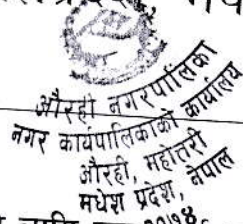 औरही नगरपालिका
नगर कार्यपालिकाको कार्यालय
औरही, महोत्तरी
मधेश प्रदेश, नेपाल